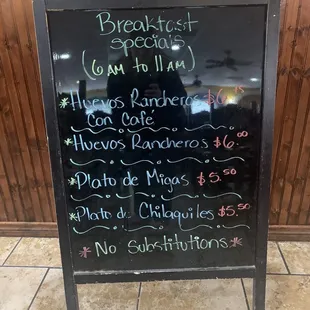 Breakfast
specials
(6 AM to 11 AM)
*Huevos Rancheros
Con Café
*Huevos Rancheros $6.00
*Plato de Migas $5.50
*Plato de Chilaquiles $5.50
*No Substitutions*